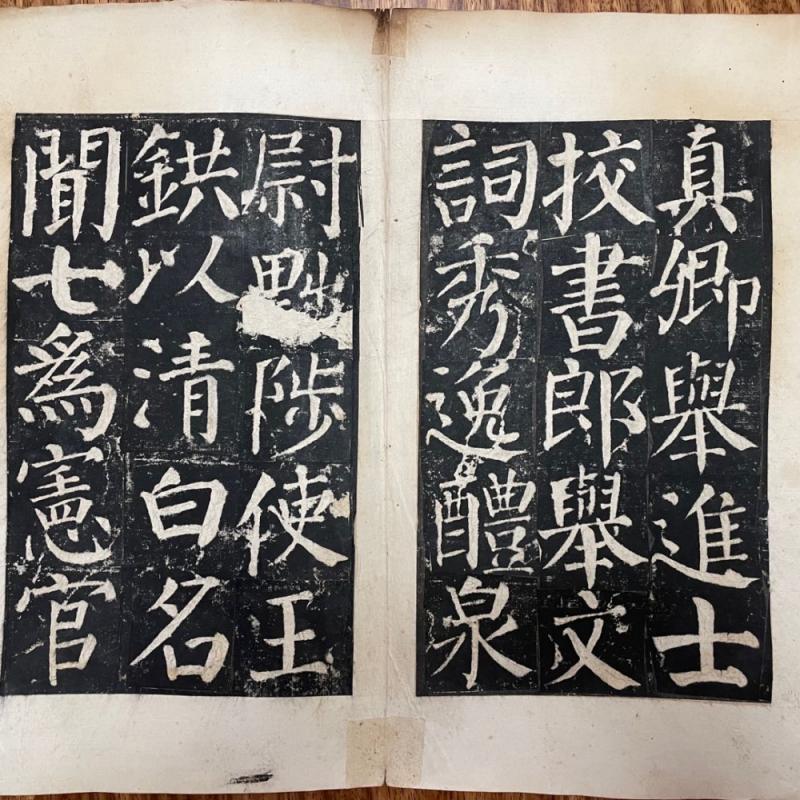 真卿舉進士
挍書郎舉文
詞秀逸醴泉
尉黜陟使王
鉷以清白名
聞七為憲官